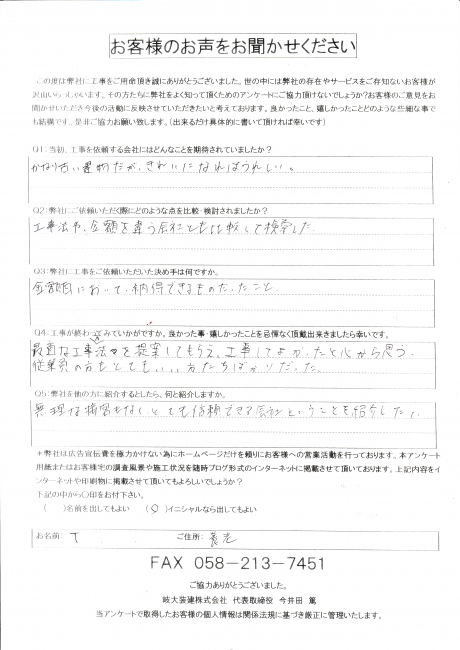 お客様のお声をお聞かせください
この度は弊社に工事をご用命頂き誠にありがとうございました。世の中には弊社の存在やサービスをご存知ないお客様が
沢山いらっしゃいます。その方たちに弊社をよく知って頂くためのアンケートにご協力頂けないでしょうか?お客様のご意見をお
聞かせいただき今後の活動に反映させていただきたいと考えております。良かったこと、嬉しかったことどのような些細な事で
も結構です。是非ご協力お願い致します。(出来るだけ具体的に書いて頂ければ幸いです)
Q1:当初、工事を依頼する会社にはどんなことを期待されていましたか?
かなり古い建物だが、きれいになればうれしい。
Q2:弊社にご依頼いただく際にどのような点を比較・検討されましたか?
工事法や、金額を違う会社とも比較して検索した
Q3:弊社に工事をご依頼いただいた決め手は何ですか。
金額面において、納得できるものだったこと
Q4:工事が終わってみていかがですか。良かった事・嬉しかったことを忌憚なく頂戴出来ましたら幸いです。
最適な工事法を提案してもらえ、工事してよかったと心から思う。
従業員の方もとてもいい方たちばかりだった。
Q5:弊社を他の方に紹介するとしたら、何と紹介しますか。
無理な接客もなく、とても信頼できる会社ということを紹介したい
＊弊社は広告宣伝費を極力かけない為にホームページだけを頼りにお客様への営業活動を行っております。本アンケート
用紙またはお客様宅の調査風景や施工状況を随時ブログ形式のインターネットに掲載させて頂いております。上記内容をイ
ンターネットや印刷物に掲載させて頂いてもよろしいでしょうか?
下記の中から○印をお付下さい。
( )名前を出してもよい (○)イニシャルなら出してもよい
お名前: T ご住所: 養老
FAX 058-213-7451
ご協力ありがとうございました。
岐大装建株式会社 代表取締役 今井田 篤
当アンケートで取得したお客様の個人情報は関係法規に基づき厳正に管理いたします。